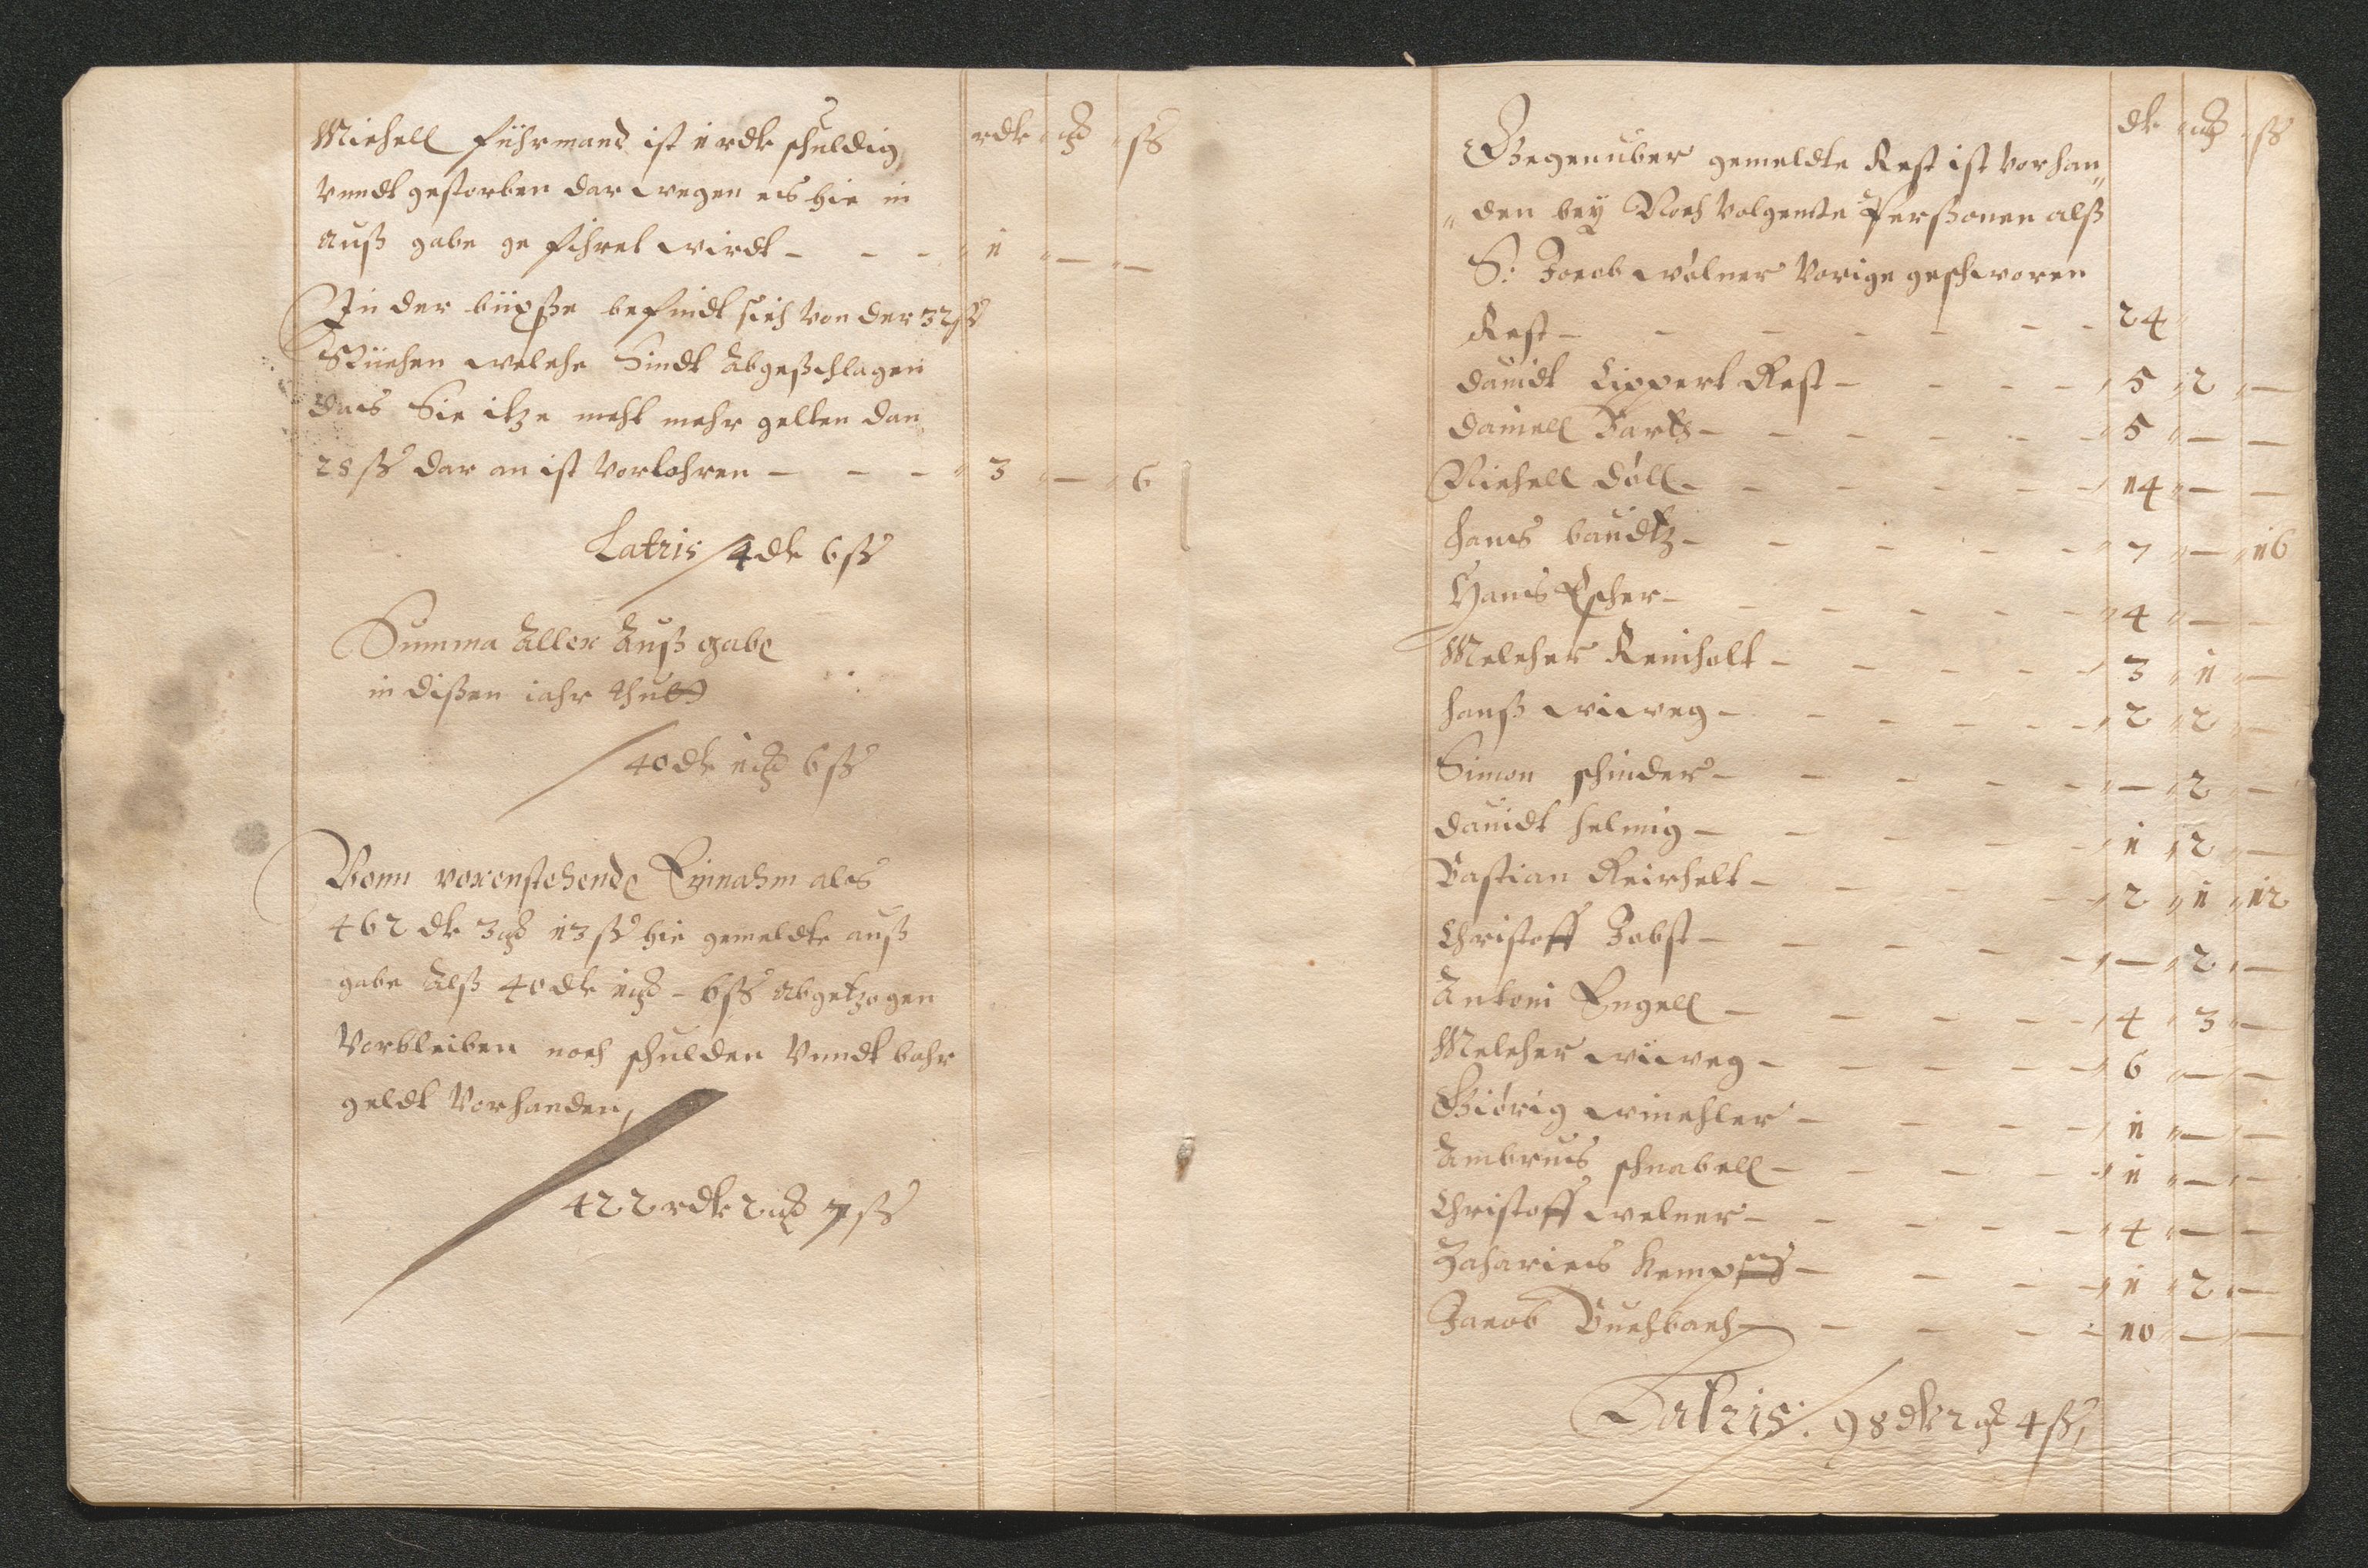 rdlr ort ſß
Michell führmand ist 1 rdlr schuldig
vnndt gestorben dar wegen eß hie in
auß gabe ge führet wirdt - - - " 1 " — " —
In der büxße befindt sich von der 32 ſß
Stüchen welche Sindt Abgeßchlagen
daß Sie itze nicht mehr gelten dan
28 ſß dar an ist vorlohren - - - " 3 " — " 6
Latris / 4 dlr 6 ſß
Summa Aller Auß gabe
in dißen iahr thutt
/ 40 dlr 1 ort 6 ſß
Vonn vorenstehende Einnahm alß
462 dlr 3 ort 13 ſß hie gemeldte auß
gabe Alß 40 dlr 1 ort - 6 ſß abgetzogen
Vorbleiben noch schulden vnndt bahr
geldt vorhanden,
/ 422 rdlr 2 ort 7 ſß
dlr ort ſß
Gegenuber gemeldte Rest ist vorhan„
„den beÿ Noch volgente Perßonen alß
S: Jocob wölner vorige geschworen
Rest - - - - - - - 24 "
dauidt Lippert Rest - - - - " 5 " 2 " —
daniell Jartz - - - - - - " 5 " — —
Michell döll - - - - - - " 14 " — —
hans baudtz - - - - - " 7 " — " 16
Hans Escher - - - - - - " 4 " — —
Melcher Reinholt - - - - - " 3 " 1 " —
hanß wiweg - - - - - - " 2 " 2 " —
Simon schinder - - - - - - " — " 2 " —
dauidt helmig - - - - - " 1 " 2 " —
Bastian Reichelt - - - - - " 2 " 1 " 12
Christoff Jobst - - - - - - " — " 2 " —
Antoni Engell - - - - - " 4 " 3 " —
Melcher wiweg - - - - - - " 6 " — —
Giörig winchler - - - - - " 1 " — —
Ambruß schnabell - - - - - " 1 " — —
Christoff welner - - - - - " 4 " — —
Zacharies - - - - " 1 " 2 " —
Jacob Buchbach - - - - - 10 — —
Latris: / 98 dlr 2 ort 4 ſß,